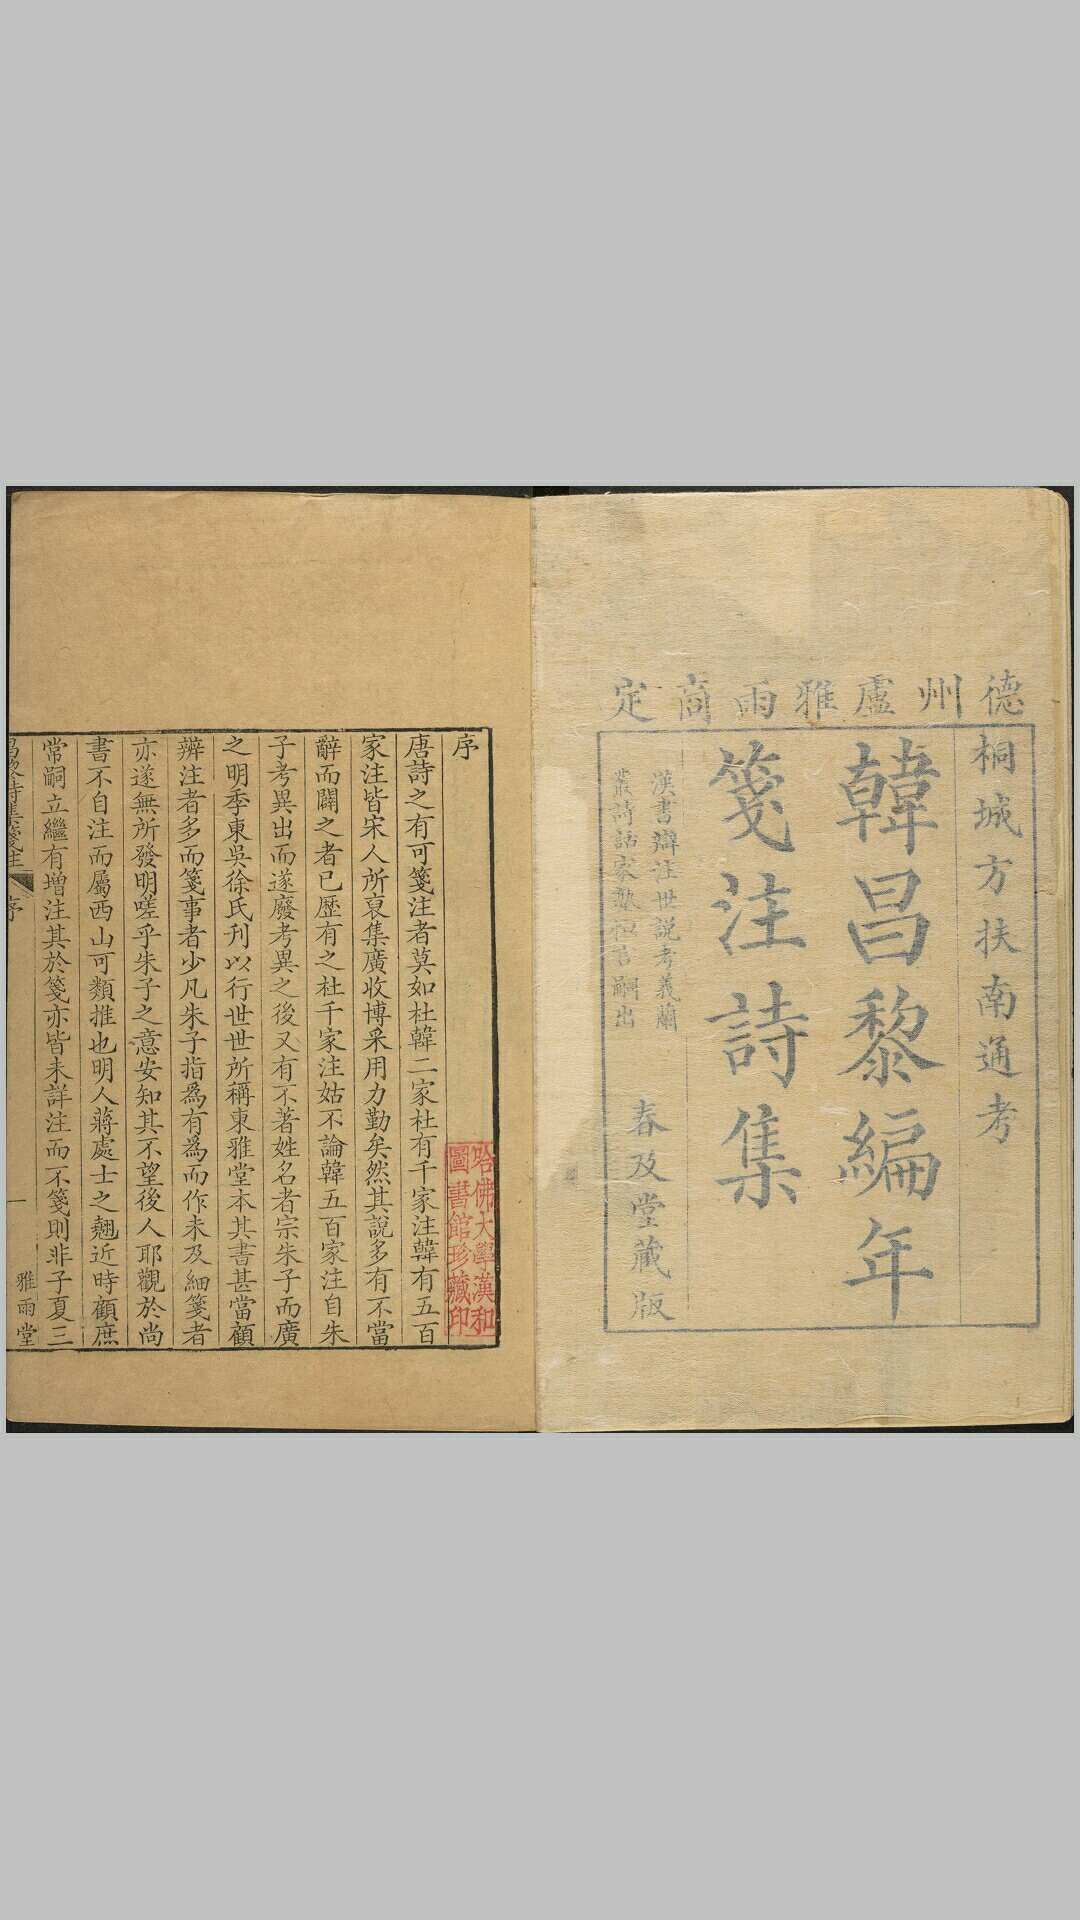 德州盧雅雨商定
桐城方扶南通考
韓昌黎編年
箋注詩集
漢書辯注世說考義蘭
叢詩話家塾恒言嗣出
春及堂藏版
序
唐詩之有可箋注者莫如杜韓二家杜有千家注韓有五百
家注皆宋人所裒集廣收博采用力勤矣然其說多有不當
辭而闢之者已歷有之杜千家注姑不論韓五百家注自朱
子考異出而遂廢考異之後又有不著姓名者宗朱子而廣
之明季東吳徐氏刊以行世世所稱東雅堂本其書甚當顧
辨注者多而箋事者少凡朱子指爲有爲而作未及細箋者
亦遂無所發明嗟乎朱子之意安知其不望後人耶觀於尚
書不自注而屬西山可類推也明人蔣處士之翹近時顧庶
常嗣立繼有增注其於箋亦皆未詳注而不箋則非子夏三
昌黎詩集箋注 序
一
雅雨堂
哈佛大學漢和
圖書館珍藏印